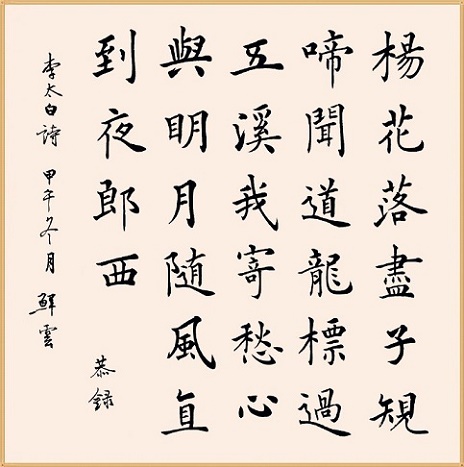 楊花落盡子規
啼聞道龍標過
五溪我寄愁心
與明月隨風直
到夜郎西
恭錄
李太白詩 甲午冬月 鮮雲